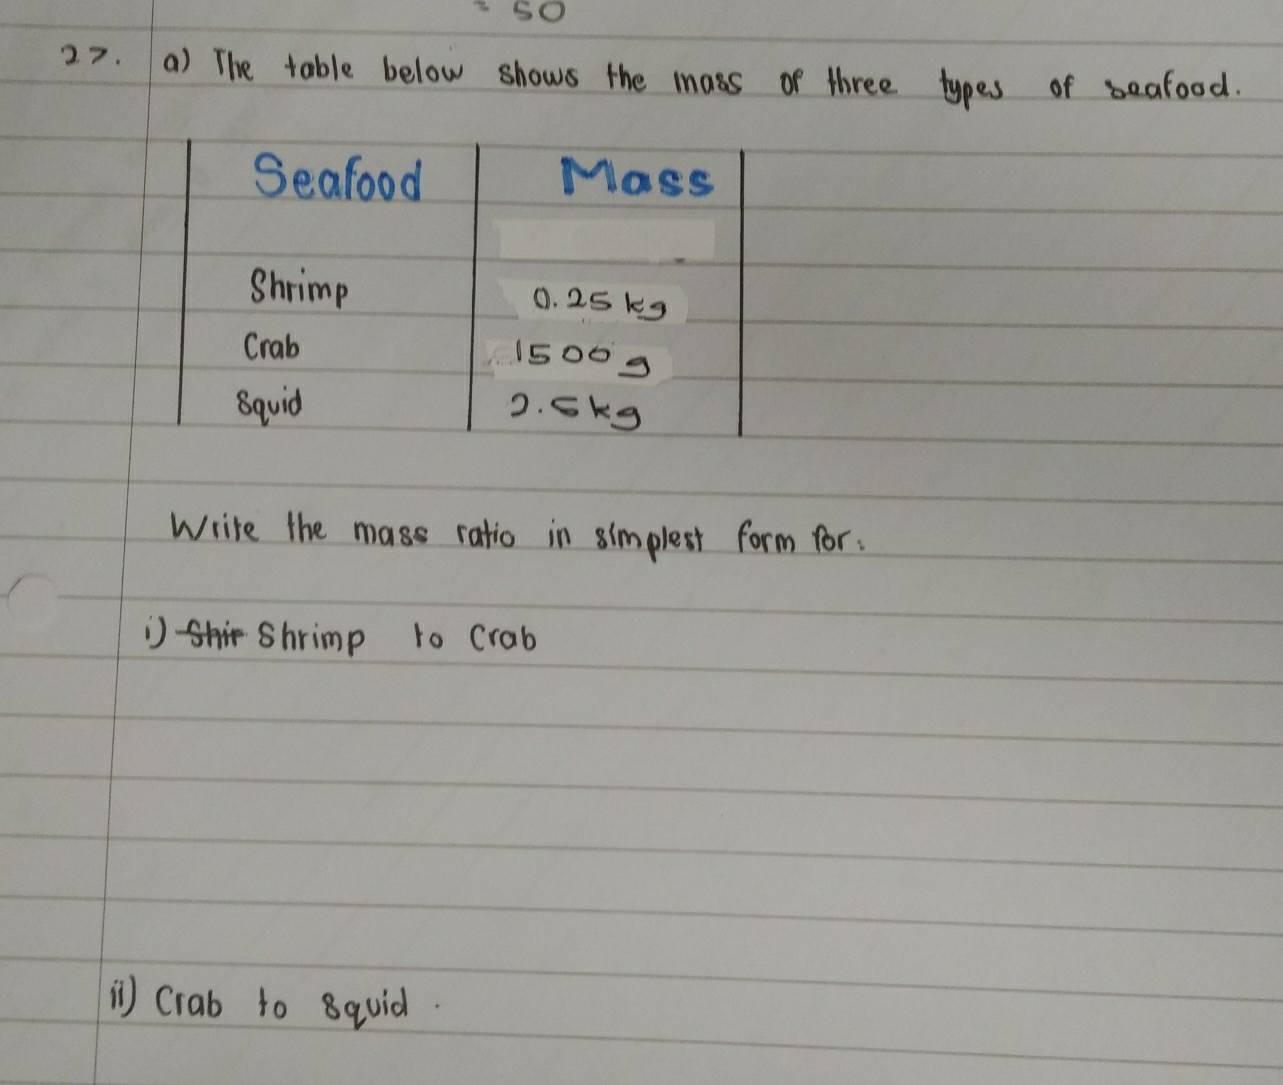 = 50
27. a) The table below shows the mass of three types of seafood.
Seafood Mass
Shrimp 0.25 kg
Crab 1500 g
Squid 2.5 kg
Write the mass ratio in simplest form for:
i) Shir Shrimp to Crab
ii) Crab to squid.